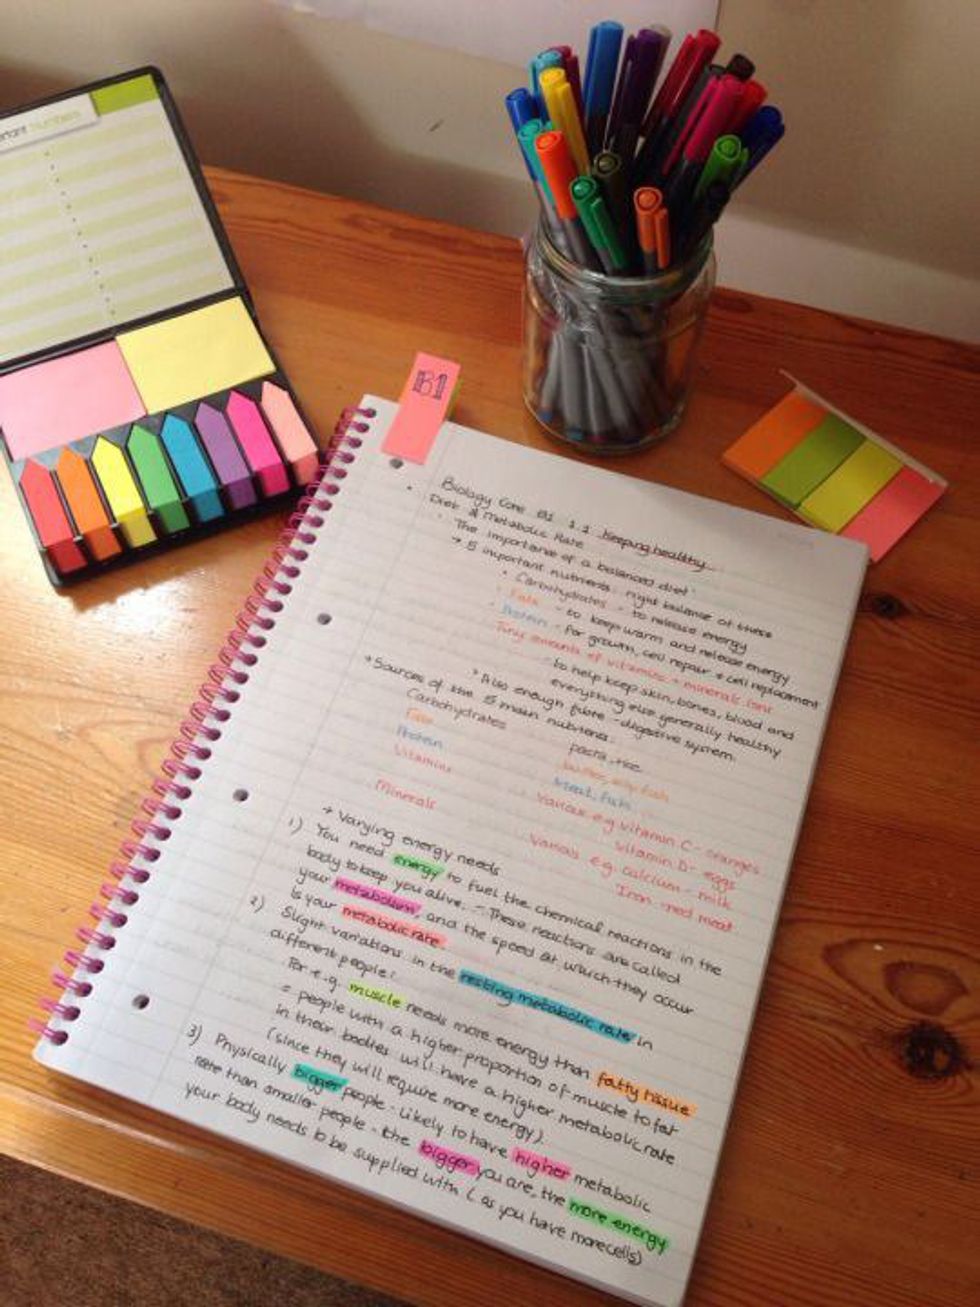 important numbers
B1
Biology Core B1 1.1 Keeping healthy
Diet & Metabolic Rate
The importance of a balanced diet
→ 5 important nutrients - right balance of these
• Carbohydrates - to release energy
• Fats - to keep warm and release energy
• Protein - for growth, cell repair + cell replacement
Tiny amounts of vitamins + minerals
- to help keep skin, bones, blood and
everything else generally healthy
• Also enough fibre - digestive system.
→ Sources of the 5 main nutrients.
Carbohydrates pasta, rice
Fats butter, oily fish
Protein Meat, fish
Vitamins Various e.g vitamin C - oranges
vitamin D - eggs
Minerals Various e.g. calcium - milk
Iron - red meat
→ Varying energy needs
1) You need energy to fuel the chemical reactions in the
body to keep you alive. - These reactions are called
your metabolism, and the speed at which they occur
is your metabolic rate
2) Slight variations in the resting metabolic rate in
different people:
For e.g. muscle needs more energy than fatty tissue
= people with a higher proportion of muscle to fat
in their bodies will have a higher metabolic rate
(since they will require more energy).
3) Physically bigger people - likely to have higher metabolic
rate than smaller people - the bigger you are, the more energy
your body needs to be supplied with (as you have more cells)